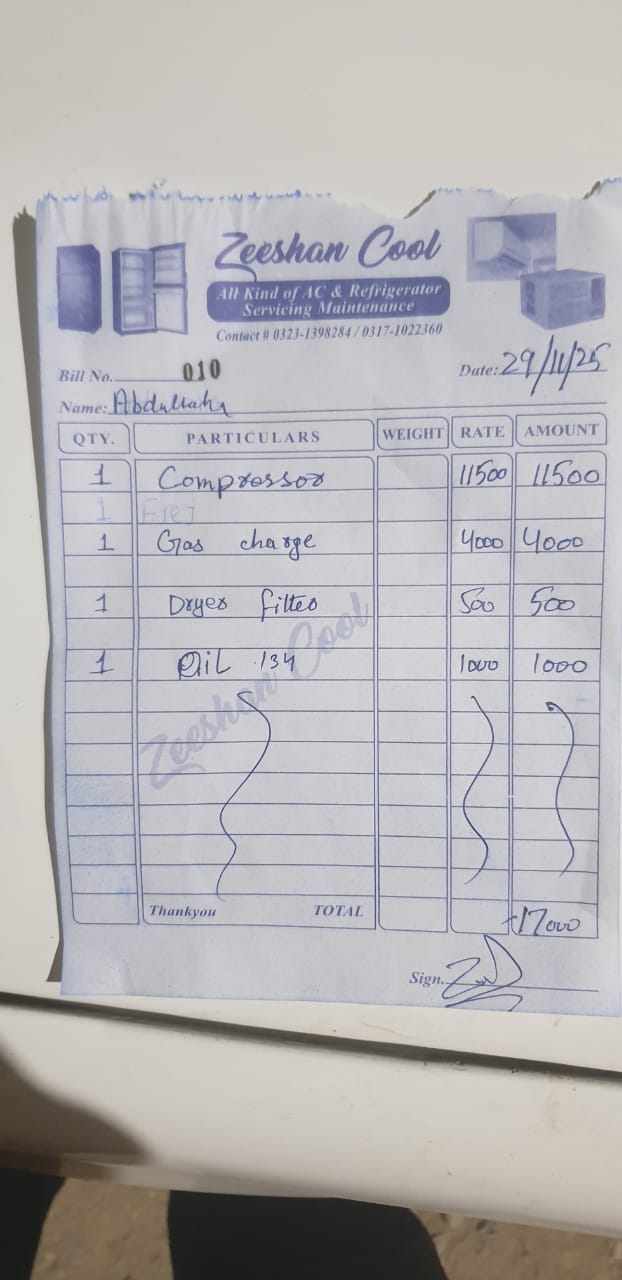 Zeeshan Cool
All Kind of AC & Refrigerator
Servicing Maintenance
Contact # 0323-1398284 / 0317-1022360
Bill No. 010 Date: 29/11/25
Name: Abdullah
QTY. PARTICULARS WEIGHT RATE AMOUNT
1 Compressor 11500 11500
1
1 Gas charge 4000 4000
1 Dryer filter 500 500
1 Oil 134 1000 1000
Zeeshan Cool
Thankyou TOTAL 17000
Sign.